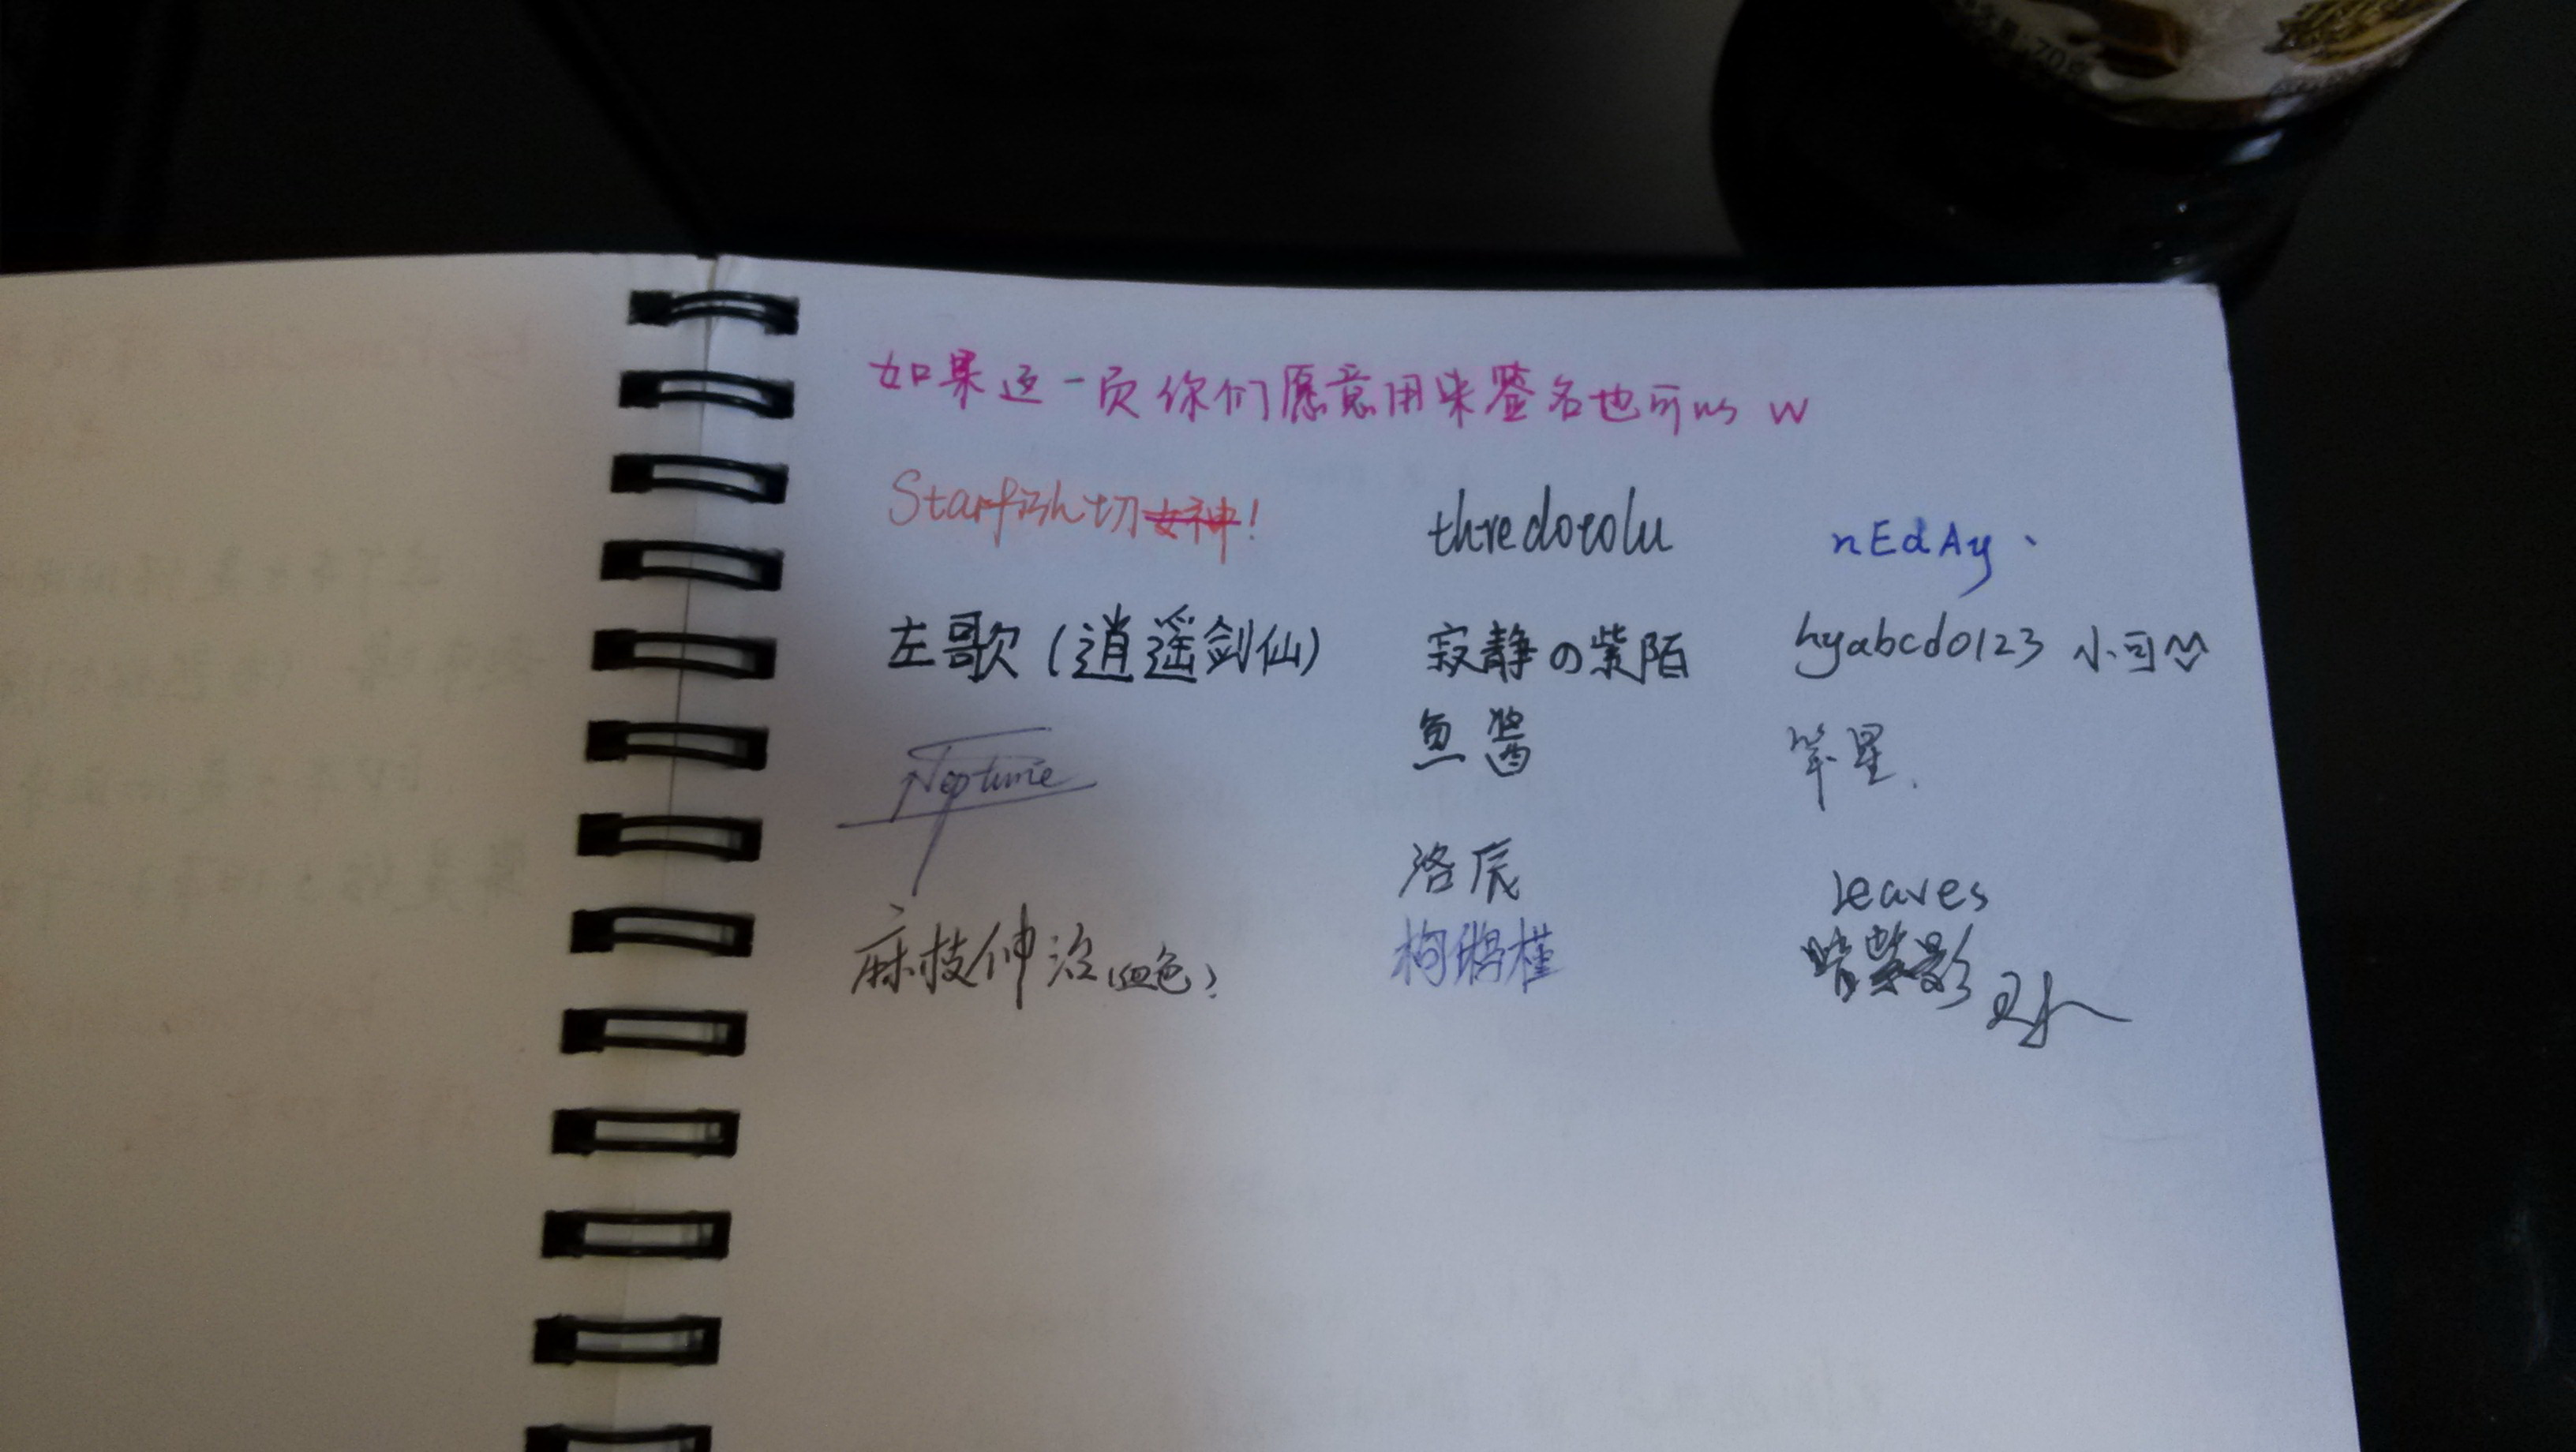 如果这一页你们愿意用来签名也可以 w
Starfish切女神!
thredocolu
nEdAy、
左歌(逍遥剑仙)
寂静の紫陌
hyabcd0123 小可
Neptune
鱼酱
笨星.
洛辰
leaves
麻枝伸治(血色)
暗紫影
70g